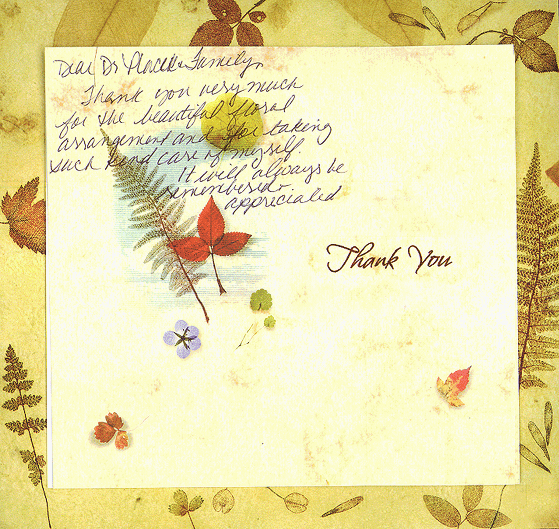 Dear Dr & Family,
Thank you very much
for the beautiful floral
arrangement and for taking
such kind care of myself.
It will always be
remembered &
appreciated
Thank You